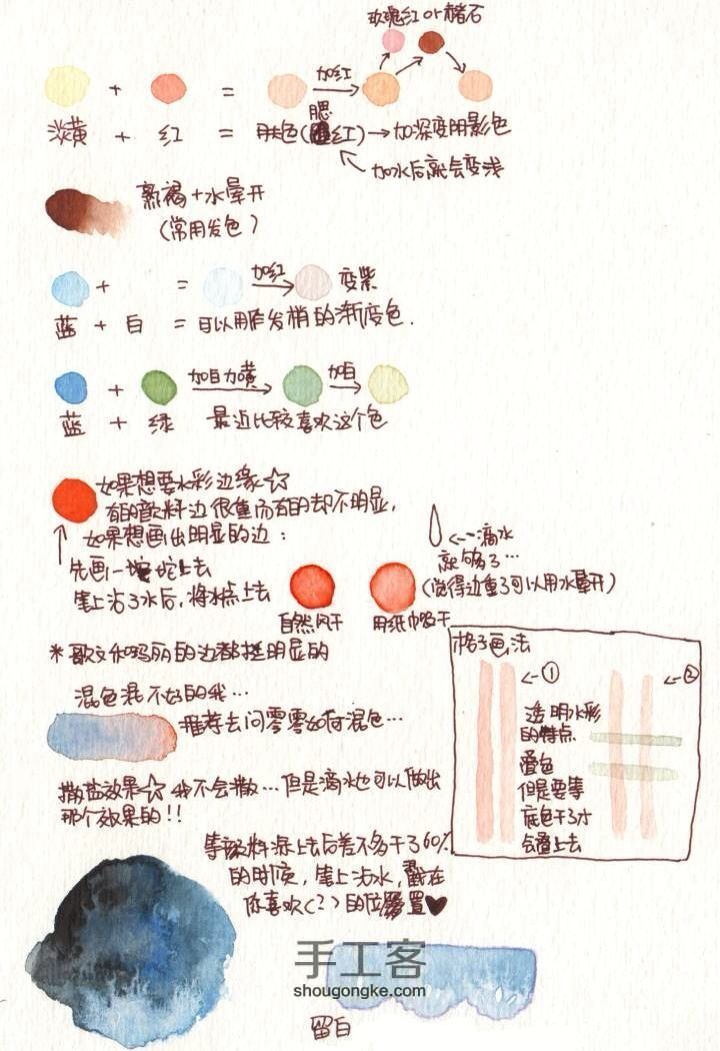 玫瑰红or赭石
+ = 加红
淡黄 + 红 = 肤色(腮红)→加深变阴影色
加水后就会变浅
熟褐+水晕开
(常用发色)
+ = 加红 变紫
蓝 + 白 = 可以用作发梢的渐变色.
+ 加白加黄 加白
蓝 + 绿 最近比较喜欢这个色
如果想要水彩边缘☆
有的颜料边很重而有的却不明显,
如果想画出明显的边:
先画一坨上去
笔上沾了水后,将水点上去
自然风干
用纸巾吸干
←一滴水
就够了…
(觉得边重了可以用水晕开)
*歌文和玛丽的边都挺明显的
混色混不好的我…
推荐去问零零如何混色…
格子画法
←①
←②
透明水彩
的特点
叠色
但是要等
底色干了才
会叠上去
撒盐效果☆我不会撒…但是滴水也可以做出
那个效果的!!
等颜料涂上去后差不多干了60%
的时候,笔上沾水,戳在
你喜欢(?)的位置♥
手工客
shougongke.com
留白